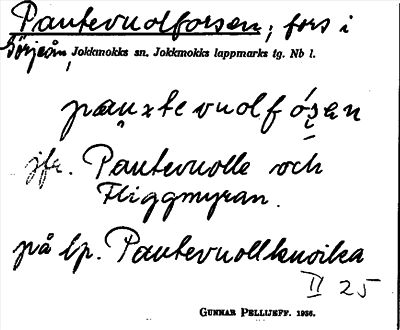 Pautevuolforsen; fors i
Börjeån, Jokkmokks sn. Jokkmokks lappmarks tg. Nb l.
jfr. Pautevuolle och
Fliggmyran.
på lp. Pautevuollkuoika
II 25
GUNNAR PELLIJEFF. 1936.